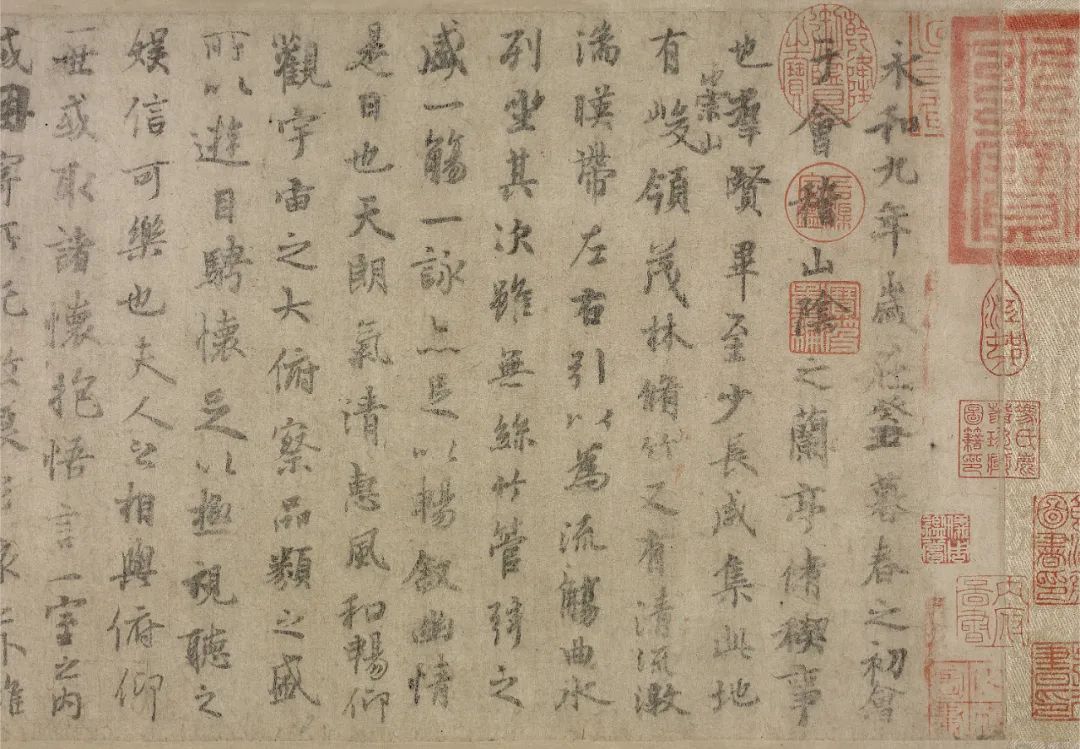 永和九年歲在癸丑暮春之初會
于會稽山陰之蘭亭脩稧事
也羣賢畢至少長咸集此地
有崇山峻領茂林脩竹又有清流激
湍暎帶左右引以為流觴曲水
列坐其次雖無絲竹管弦之
盛一觴一詠亦足以暢敘幽情
是日也天朗氣清惠風和暢仰
觀宇宙之大俯察品類之盛
所以遊目騁懷足以極視聽之
娛信可樂也夫人之相與俯仰
一世或取諸懷抱悟言一室之內
或因寄所